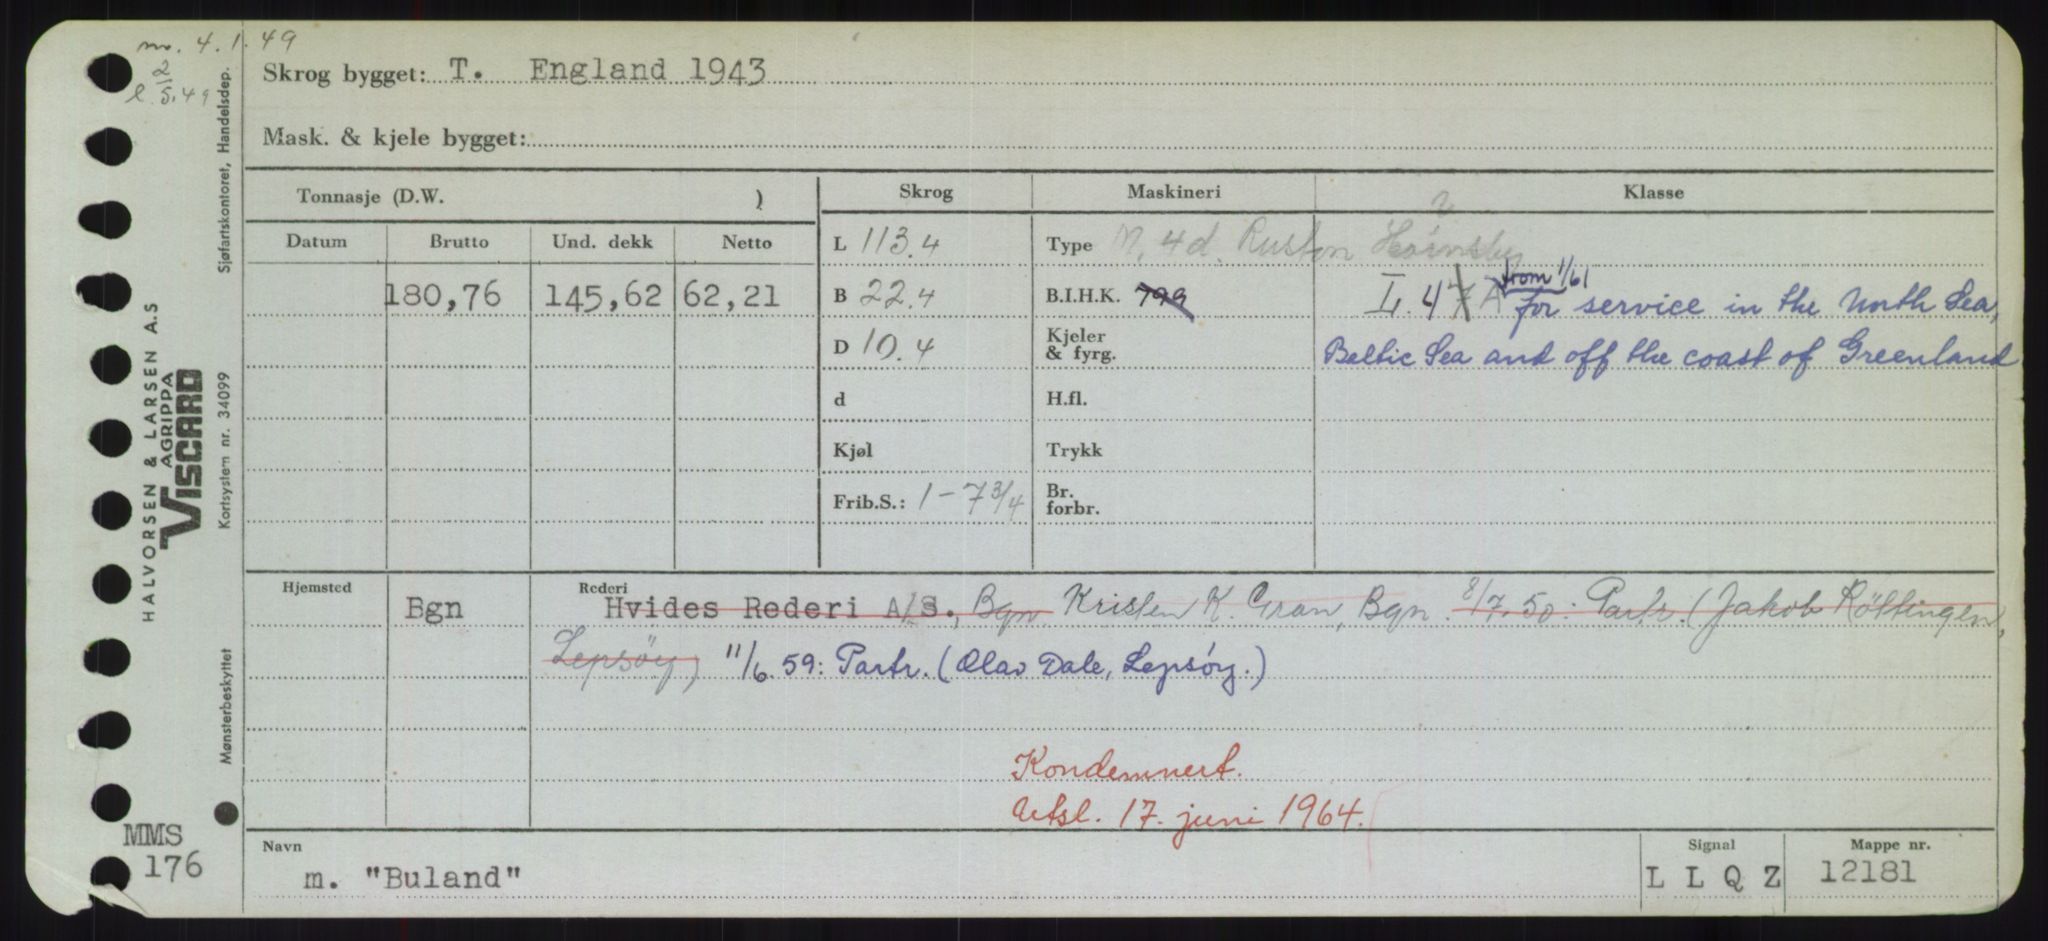 mo. 4.1.49
2
l. 5.49
Skrog bygget: T. England 1943
Mask. & kjele bygget:
Tonnasje (D.W. )
Skrog
Maskineri
Klasse
Datum
Brutto
Und. dekk
Netto
L 113.4
Type M. 4d. Ruston Hornsby
180,76
145,62
62,21
B 22.4
B.I.H.K. 799
I. 4 7 A from 1/61 for service in the North Sea,
D 10.4
Kjeler
& fyrg.
Baltic Sea and off the coast of Greenland
d
H.fl.
Kjøl
Trykk
Frib.S.: 1-7 3/4
Br.
forbr.
Hjemsted
Bgn
Rederi
Hvides Rederi A/S., Bgn Kristen K. Gran, Bgn. 8/7.50: Partr. (Jakob Röttingen,
Lepsöy) 11/6.59: Partr. (Olav Dale, Lepsöy.)
Kondemnert.
Utsl. 17. juni 1964.
Navn
m. "Buland"
Signal
L L Q Z
Mappe nr.
12181
MMS
176
HALVORSEN & LARSEN A.S
AGRIPPA
VISCARD
Sjøfartskontoret, Handelsdep.
Kortsystem nr. 34099
Mønsterbeskyttet